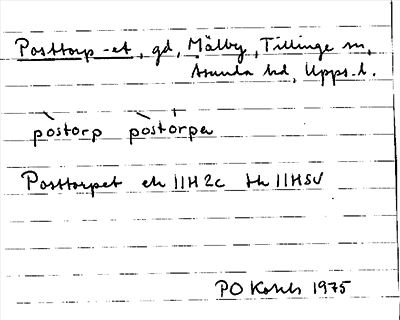 Posttorp -et, gd, Mälby, Tillinge sn,
Åsunda hd, Upps. l.
pòstorp pòstórpa
Posttorpet ek 11H2c tk 11HSV
PO 1975